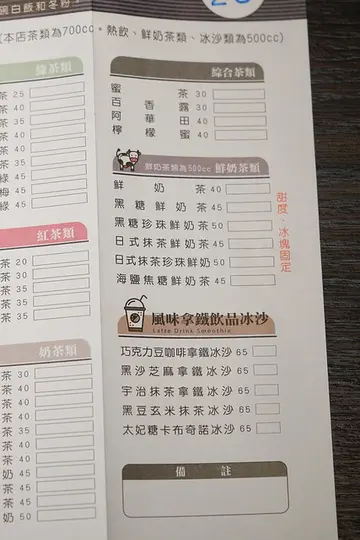 黑白飯和冬粉
(本店茶類為700cc。熱飲、鮮奶茶類、冰沙類為500cc)
綠茶類
茶 25
茶 40
茶 40
茶 35
茶 35
綠 45
梅 45
綠 45
紅茶類
茶 20
茶 30
茶 35
茶 35
茶 35
奶茶類
茶 30
茶 40
茶 40
茶 40
茶 40
茶 40
奶 45
茶 45
奶 45
奶 50
綜合茶類
蜜茶 30
百香露 30
阿華田 40
檸檬蜜 40
鮮奶茶類為500cc 鮮奶茶類
鮮奶茶 40
黑糖鮮奶茶 45
黑糖珍珠鮮奶茶 50
日式抹茶鮮奶茶 45
日式抹茶珍珠鮮奶 50
海鹽焦糖鮮奶茶 45
甜度、冰塊固定
風味拿鐵飲品冰沙
Latte Drink Smoothie
巧克力豆咖啡拿鐵冰沙 65
黑沙芝麻拿鐵冰沙 65
宇治抹茶拿鐵冰沙 65
黑豆玄米抹茶冰沙 65
太妃糖卡布奇諾冰沙 65
備註